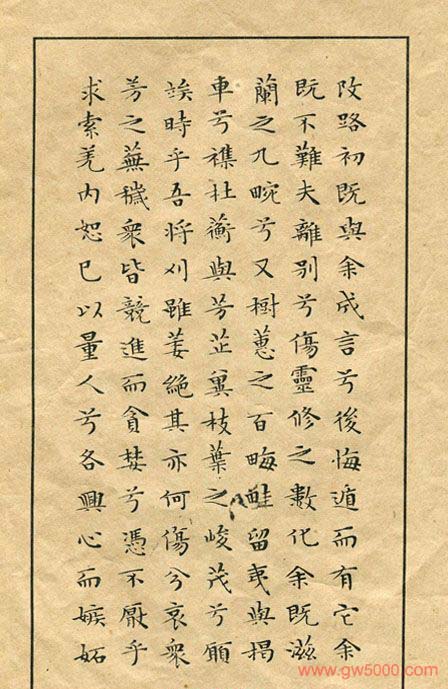 改路初既與余成言兮後悔遁而有它余
既不難夫離别兮傷靈修之數化余既滋
蘭之九畹兮又樹蕙之百畮畦留夷與揭
車兮襍杜蘅與芳芷兾枝葉之峻茂兮願
竢時乎吾將刈雖萎絶其亦何傷兮哀衆
芳之蕪穢衆皆競進而貪婪兮憑不厭乎
求索羌内恕己以量人兮各興心而嫉妬
www.gw5000.com